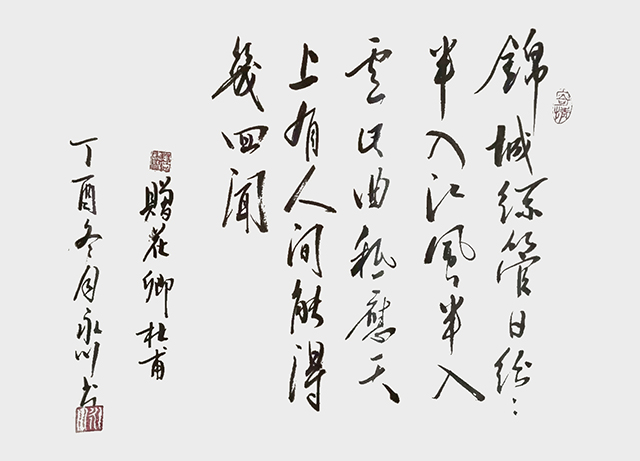 錦城絲管日紛〻
半入江風半入
雲此曲秖應天
上有人間能得
幾回聞
贈花卿杜甫
丁酉冬月永川书